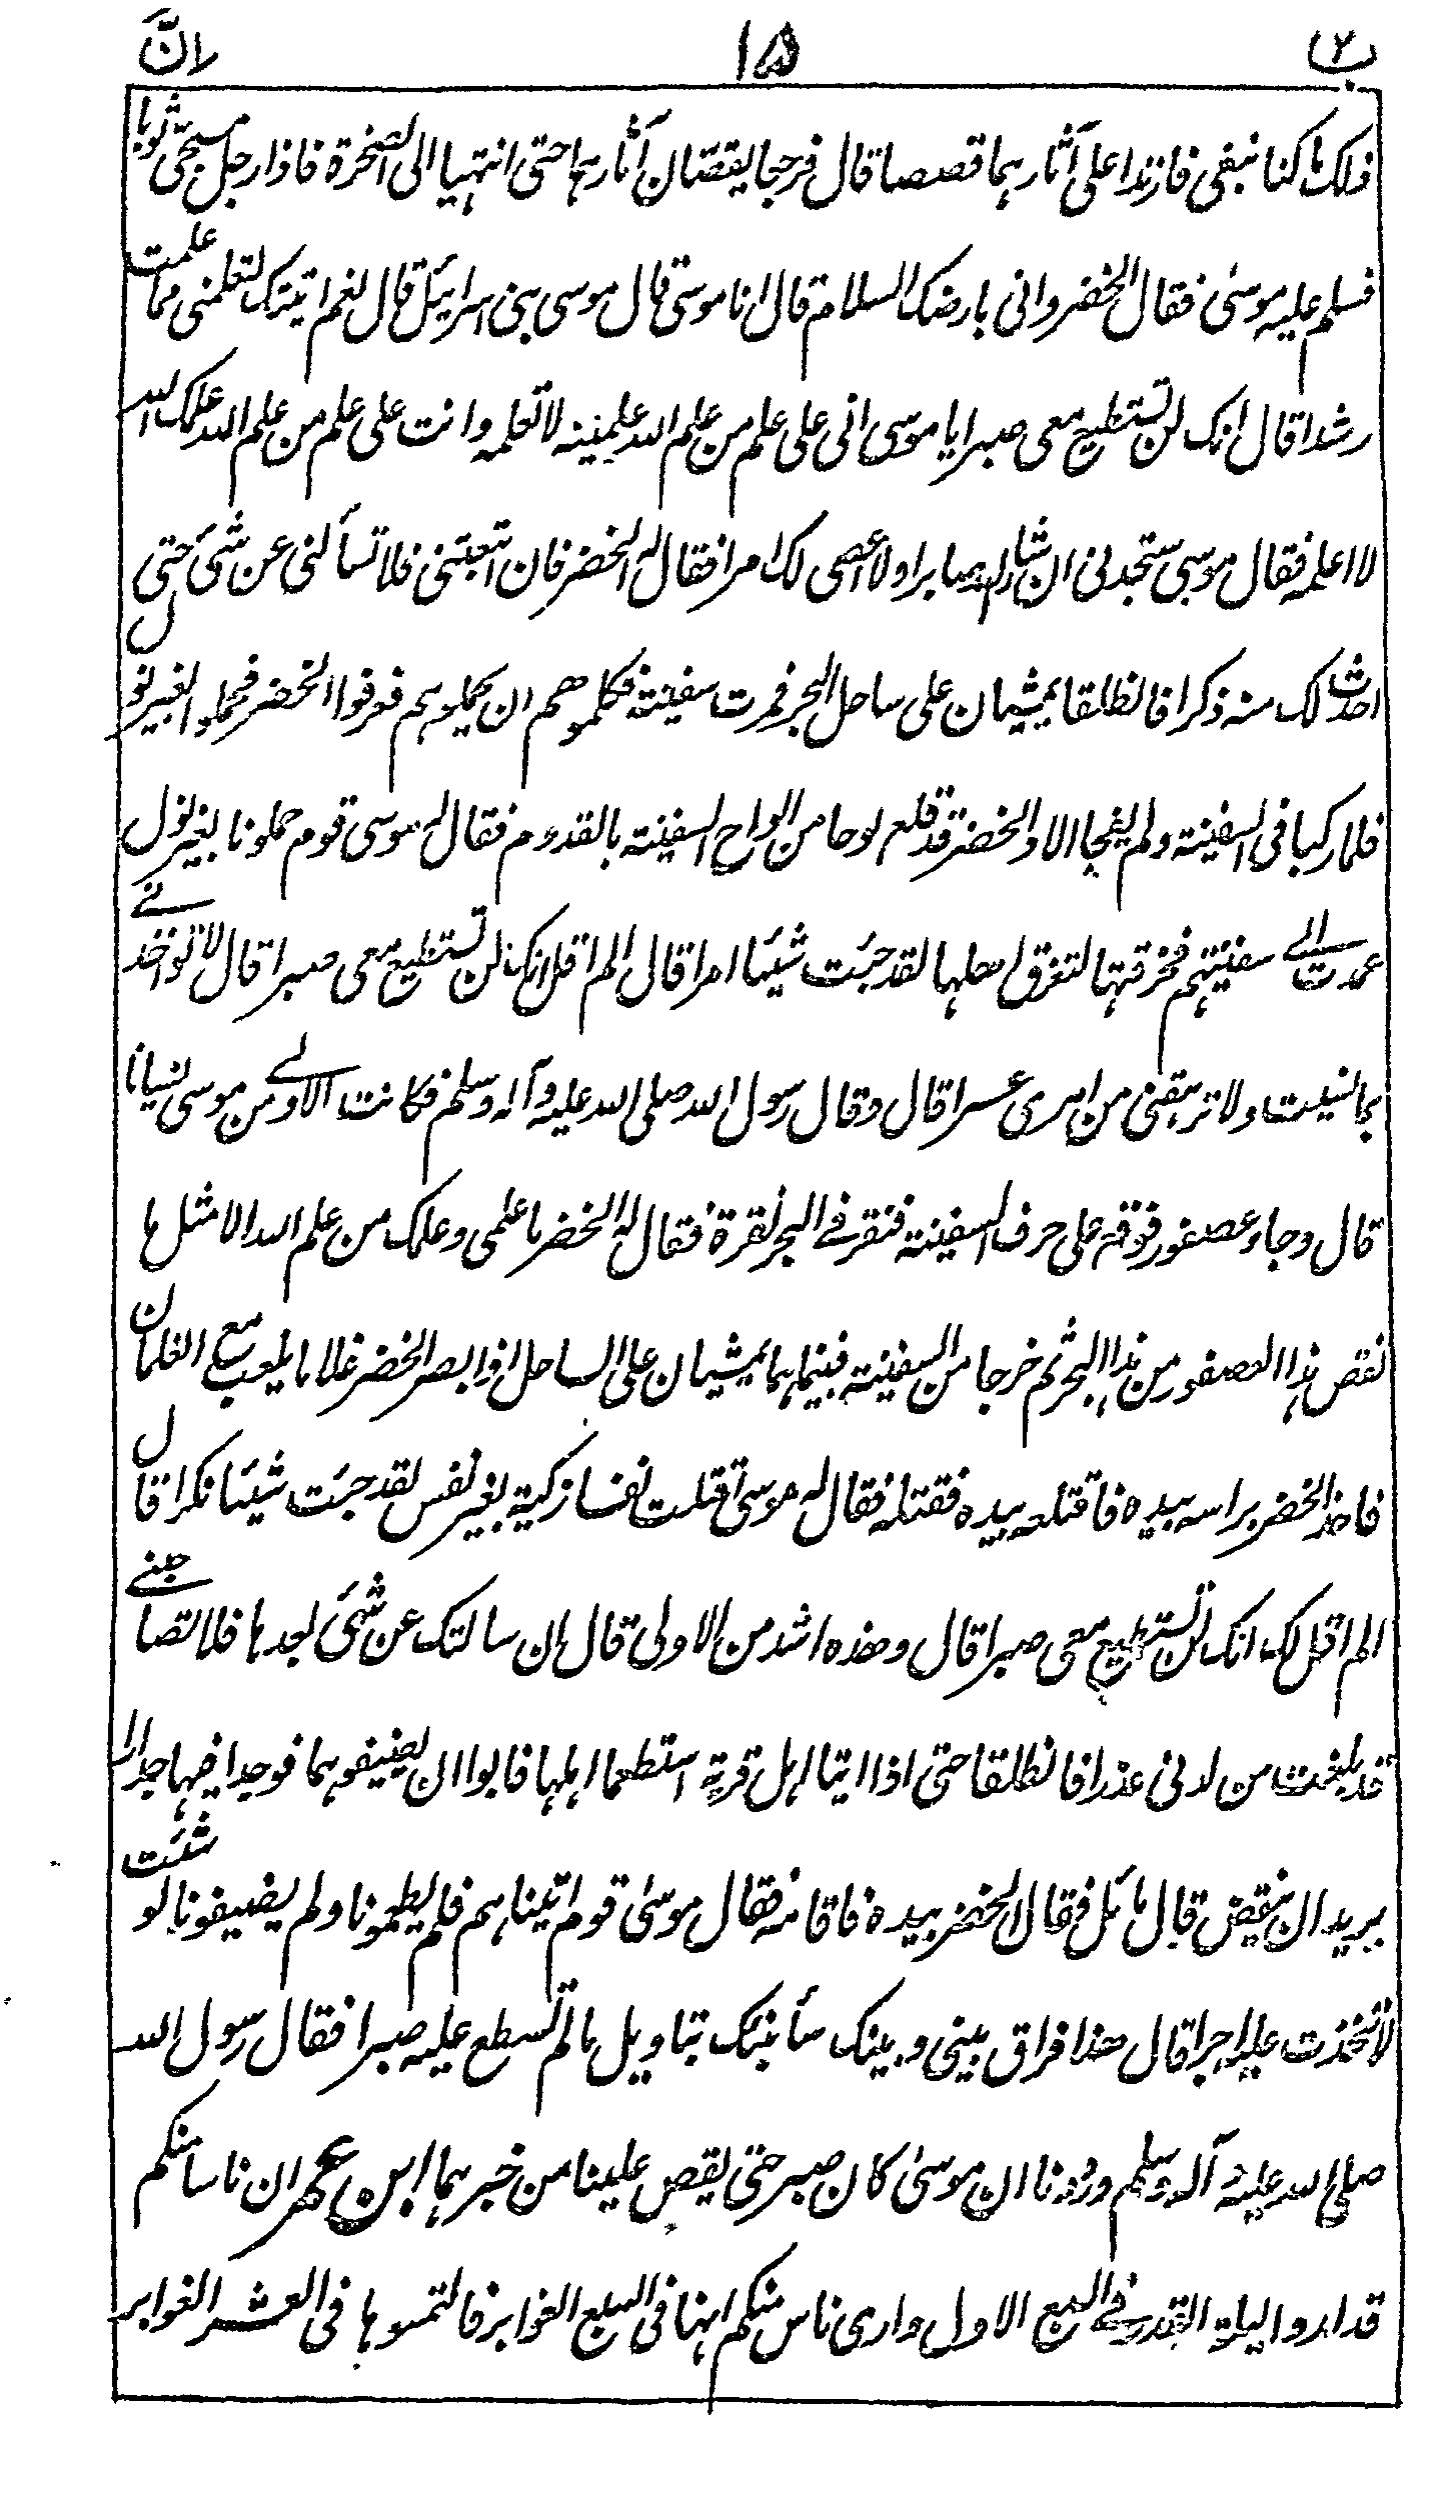 ب۲ ۱۵ انَّ
ذلک ما کنا نبغی فارتدا علی آثارہما قصصا قال فرجعا یقصّان آثارہما حتی انتہیا الی الصخرۃ فاذا رجل مسجّی ثوبا
فسلم علیہ موسیٰ فقال الخضر وانی بارضک السلام قال انا موسی قال موسی بنی اسرائیل قال نعم اتیتک لتعلمنی مما علمت
رشدا قال انک لن تستطیع معی صبرا یا موسی انی علی علم من علم اللہ علمنیہ لا تعلمہ وانت علی علم من علم اللہ علمک اللہ
لا اعلمہ فقال موسی ستجدنی ان شاء اللہ صابرا ولا اعصی لک امرا فقال لہ الخضر فان اتبعتنی فلا تسألنی عن شئ حتی
احدث لک منہ ذکرا فانطلقا یمشیان علی ساحل البحر فمرت سفینۃ فکلموھم ان یحملوہم فعرفوا الخضر فحملوا بغیر نول
فلما رکبا فی السفینۃ ولم یفجا الا والخضر قد قلع لوحا من الواح السفینۃ بالقدوم فقال لہ موسی قوم حملونا بغیر نول
عمدت الی سفینتہم فخرقتہا لتغرق اہلہا لقد جئت شیئا امرا قال الم اقل انک لن تستطیع معی صبرا قال لا تواخذنی
بما نسیت ولا ترہقنی من امری عسرا قال وقال رسول اللہ صلی اللہ علیہ وآلہ وسلم فکانت الاولی من موسی نسیانا
قال وجاء عصفور فوقع علی حرف السفینۃ فنقر فی البحر نقرۃ فقال لہ الخضر ما علمی وعلمک من علم اللہ الا مثل ما
نقص ہذا العصفور من ہذا البحر ثم خرجا من السفینۃ فبینما ہما یمشیان علی الساحل اذ ابصر الخضر غلاما یلعب مع الغلمان
فاخذ الخضر براسہ بیدہ فاقتلعہ بیدہ فقتلہ فقال لہ موسی اقتلت نفسا زکیۃ بغیر نفس لقد جئت شیئا نکرا قال
الم اقل لک انک لن تستطیع معی صبرا قال وھذہ اشد من الاولی قال ان سالتک عن شئ بعدہا فلا تصاحبنی
قد بلغت من لدنی عذرا فانطلقا حتی اذا اتیا اہل قریۃ استطعما اہلہا فابوا ان یضیفوہما فوجدا فیہا جدارا
یرید ان ینقض قال مائل فقال الخضر بیدہ فاقامہ فقال موسیٰ قوم اتیناہم فلم یطعمونا ولم یضیفونا لو شئت
لاتخذت علیہ اجرا قال ھذا فراق بینی وبینک سأنبئک بتاویل ما لم تسطع علیہ صبرا فقال رسول اللہ
صلی اللہ علیہ وآلہ وسلم وددنا ان موسیٰ کان صبر حتی یقص علینا من خبرہما ابن عمر ان ناسا منکم
قد اروا لیلۃ القدر فی السبع الاول واری ناس منکم انہا فی السبع الغوابر فالتمسوہا فی العشر الغوابر